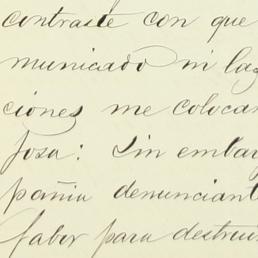 contraste con que
municado ni las
ciones me colocan
josa: Sin embar
pañia denunciant
faber para destrui